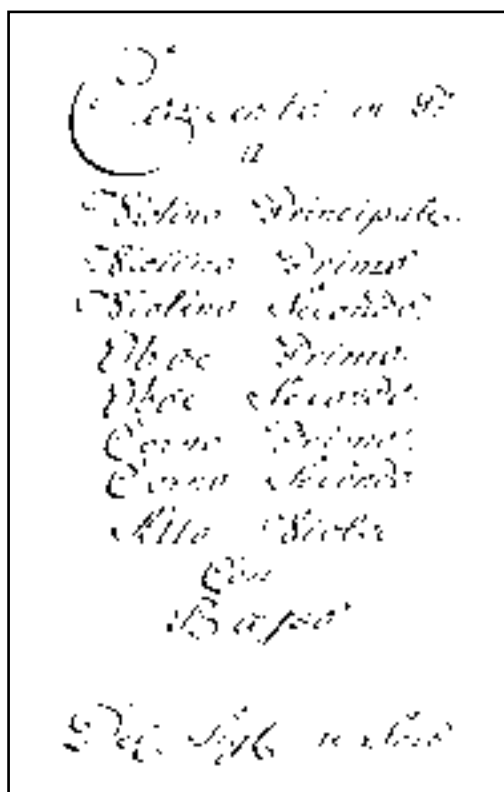 Concerto in
a
Violino Principale.
Violino Primo
Violino Secondo.
Oboe Primo.
Oboe Secondo.
Corno Primo.
Corno Secondo
Alto Viola
Con
Basso
Del